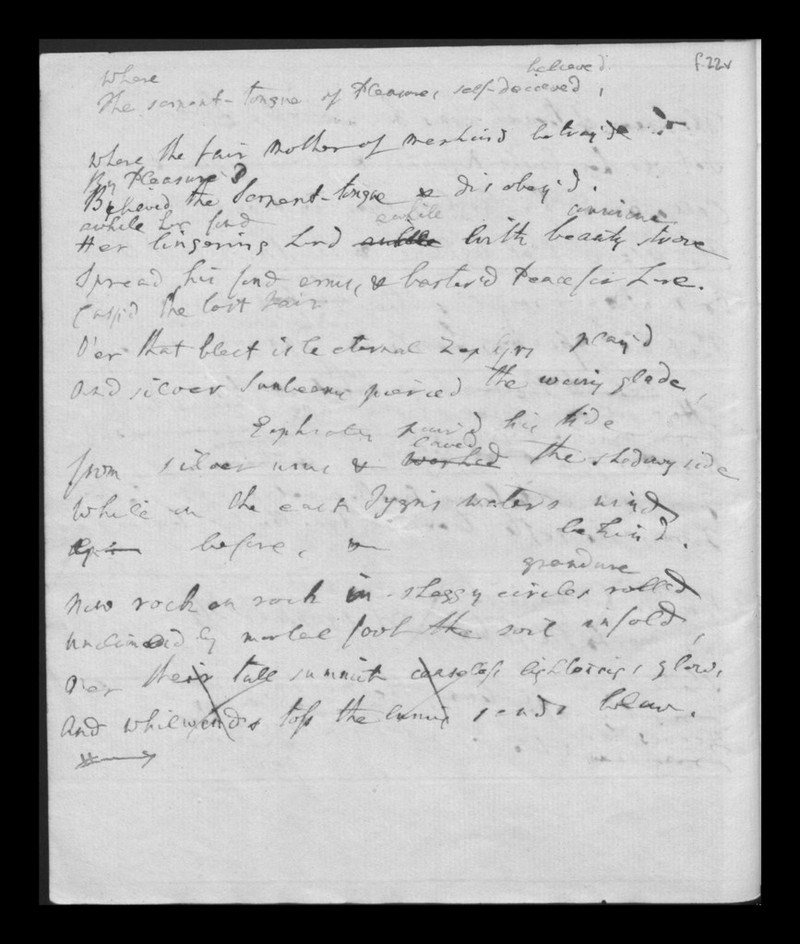 f.22v
believed
Where
The serpent-tongue of Pleasure, self-decieved,
Where the fair mother of mankind betray'd
By Pleasure's
Believed the Serpent-tongue & disobey'd.
awhile her fond awhile
Her lingering Lord awhile with beauty strove
Spread his fond arms, & barter'd Peace for Love.
Clasp'd the lost Fair
O'er that blest isle eternal Zephyrs play'd
And silver Sunbeams pierced the waving glade,
Euphrates pour'd his tide
laved
From silver urns & washed the shadowy side
While in the east Tygris waters wind
before, & behind.
grandure
Now rock on rock in shaggy circles rolled
Unclimed by mortal foot the soil infold,
O'er their tall summits ceaseless lightnings glow,
And whilwinds toss the burning sands below.